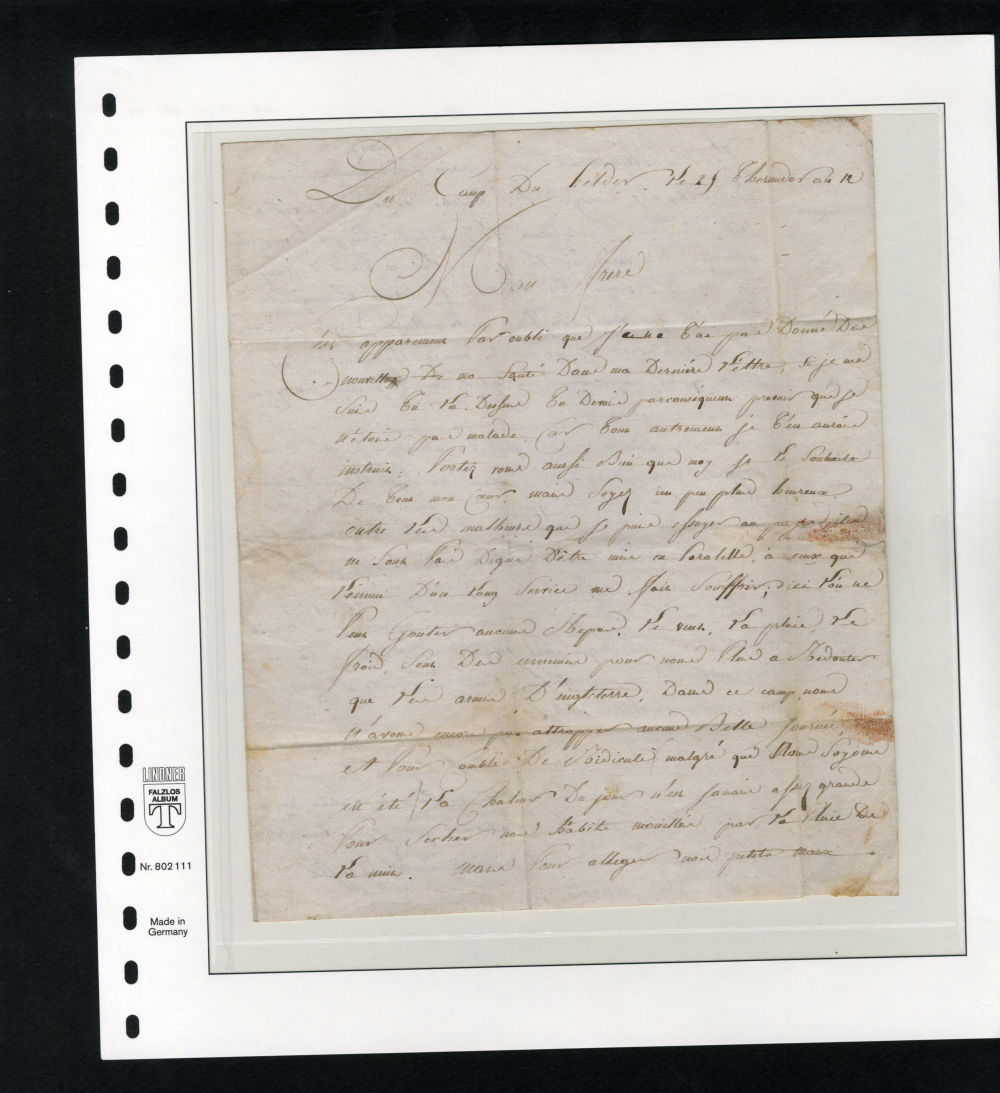 Du Camp Du helder. Le 25 Thermidor an 12
Mon frere
C'est apparament Par oubli que Je ne t'ai pas Donné Des
nouvelles De ma Santé Dans ma Derniére Lettre, si je me
Suis tû La Dessus tu Devois parconséquent penser que je
n'étois pas malade, Car tout autrement je t'en aurois
instruit. Portez vous aussi Bien que moy je le Souhaite
De tout mon Cœur, mais Soyez un peu plus heureux
outre Les malheurs que je puis essuyer au
ne Sont Pas Digne D'être mis en Paralelle, à ceux que
L'ennui D'un Long Service me fait Souffrir; ici L'on ne
Peut Gouter aucuns Repos, Le vent, La pluie, Le
froid, Sont Des ennemis pour nous Plus a Redouter
que Les armes D'angleterre, Dans ce camp, nous
N'avons encore pus attrapper aucune Belle Journée
et Pour comble De Ridicule malgré que Nous Soyons
en été, La Chaleur Du jour n'est jamais assez grande
Pour Secher nos habits mouillés par La Pluie De
La nuit. Mais Pour alleger nos petits maux
LINDNER
FALZLOS
ALBUM
T
Nr. 802 111
Made in
Germany